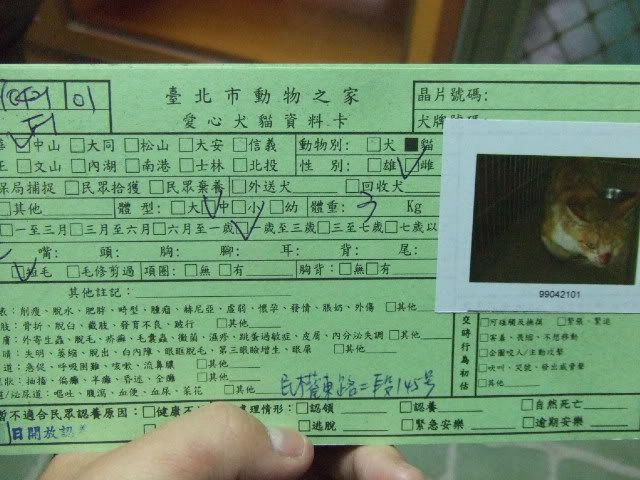 01 臺北市動物之家 晶片號碼:
愛心犬貓資料卡 犬牌號碼:
中山 □大同 □松山 □大安 □信義 動物別: □犬 ■貓
□文山 □內湖 □南港 □士林 □北投 性別: □雄 □雌
保局捕捉 □民眾拾獲 □民眾棄養 □外送犬 □回收犬
□其他 體型: □大 □中 □小 □幼 體重: 3 Kg
□一至三月 □三月至六月 □六月至一歲 □一歲至三歲 □三至七歲 □七歲以
嘴: 頭: 胸: 腳: 耳: 背: 尾:
□短毛 □毛修剪過 項圈: □無 □有 胸背: □無 □有
99042101
其他註記:
削瘦、脫水、肥胖、畸型、腫瘤、赫尼亞、虛弱、懷孕、發情、脹奶、外傷 □其他
肢: 骨折、脫臼、截肢、發育不良、跛行 □其他
膚: 外寄生蟲、脫毛、疥癬、毛囊蟲、黴菌、濕疹、跳蚤過敏症、皮屑、內分泌失調 □其他
失明、萎縮、脫出、白內障、眼眶脫毛、第三眼瞼增生、眼屎 □其他
道: 急促、呼吸困難、咳嗽、流鼻膿 □其他
狀: 抽搐、偏癱、半癱、昏迷、全癱 □其他
泌尿道: 嘔吐、腹瀉、血便、血尿、菜花 □其他
交時行為初估
□可碰觸及撫摸 □緊張、緊迫
□害羞、畏縮、不想移動
□企圖咬人/主動攻擊
□吠叫、哭號、發出威脅聲
□其他
民權東路二段145号
暫不適合民眾認養原因: □健康不 處理情形: □認領 □認養 □自然死亡
日開放認 □逃脫 □緊急安樂 □逾期安樂